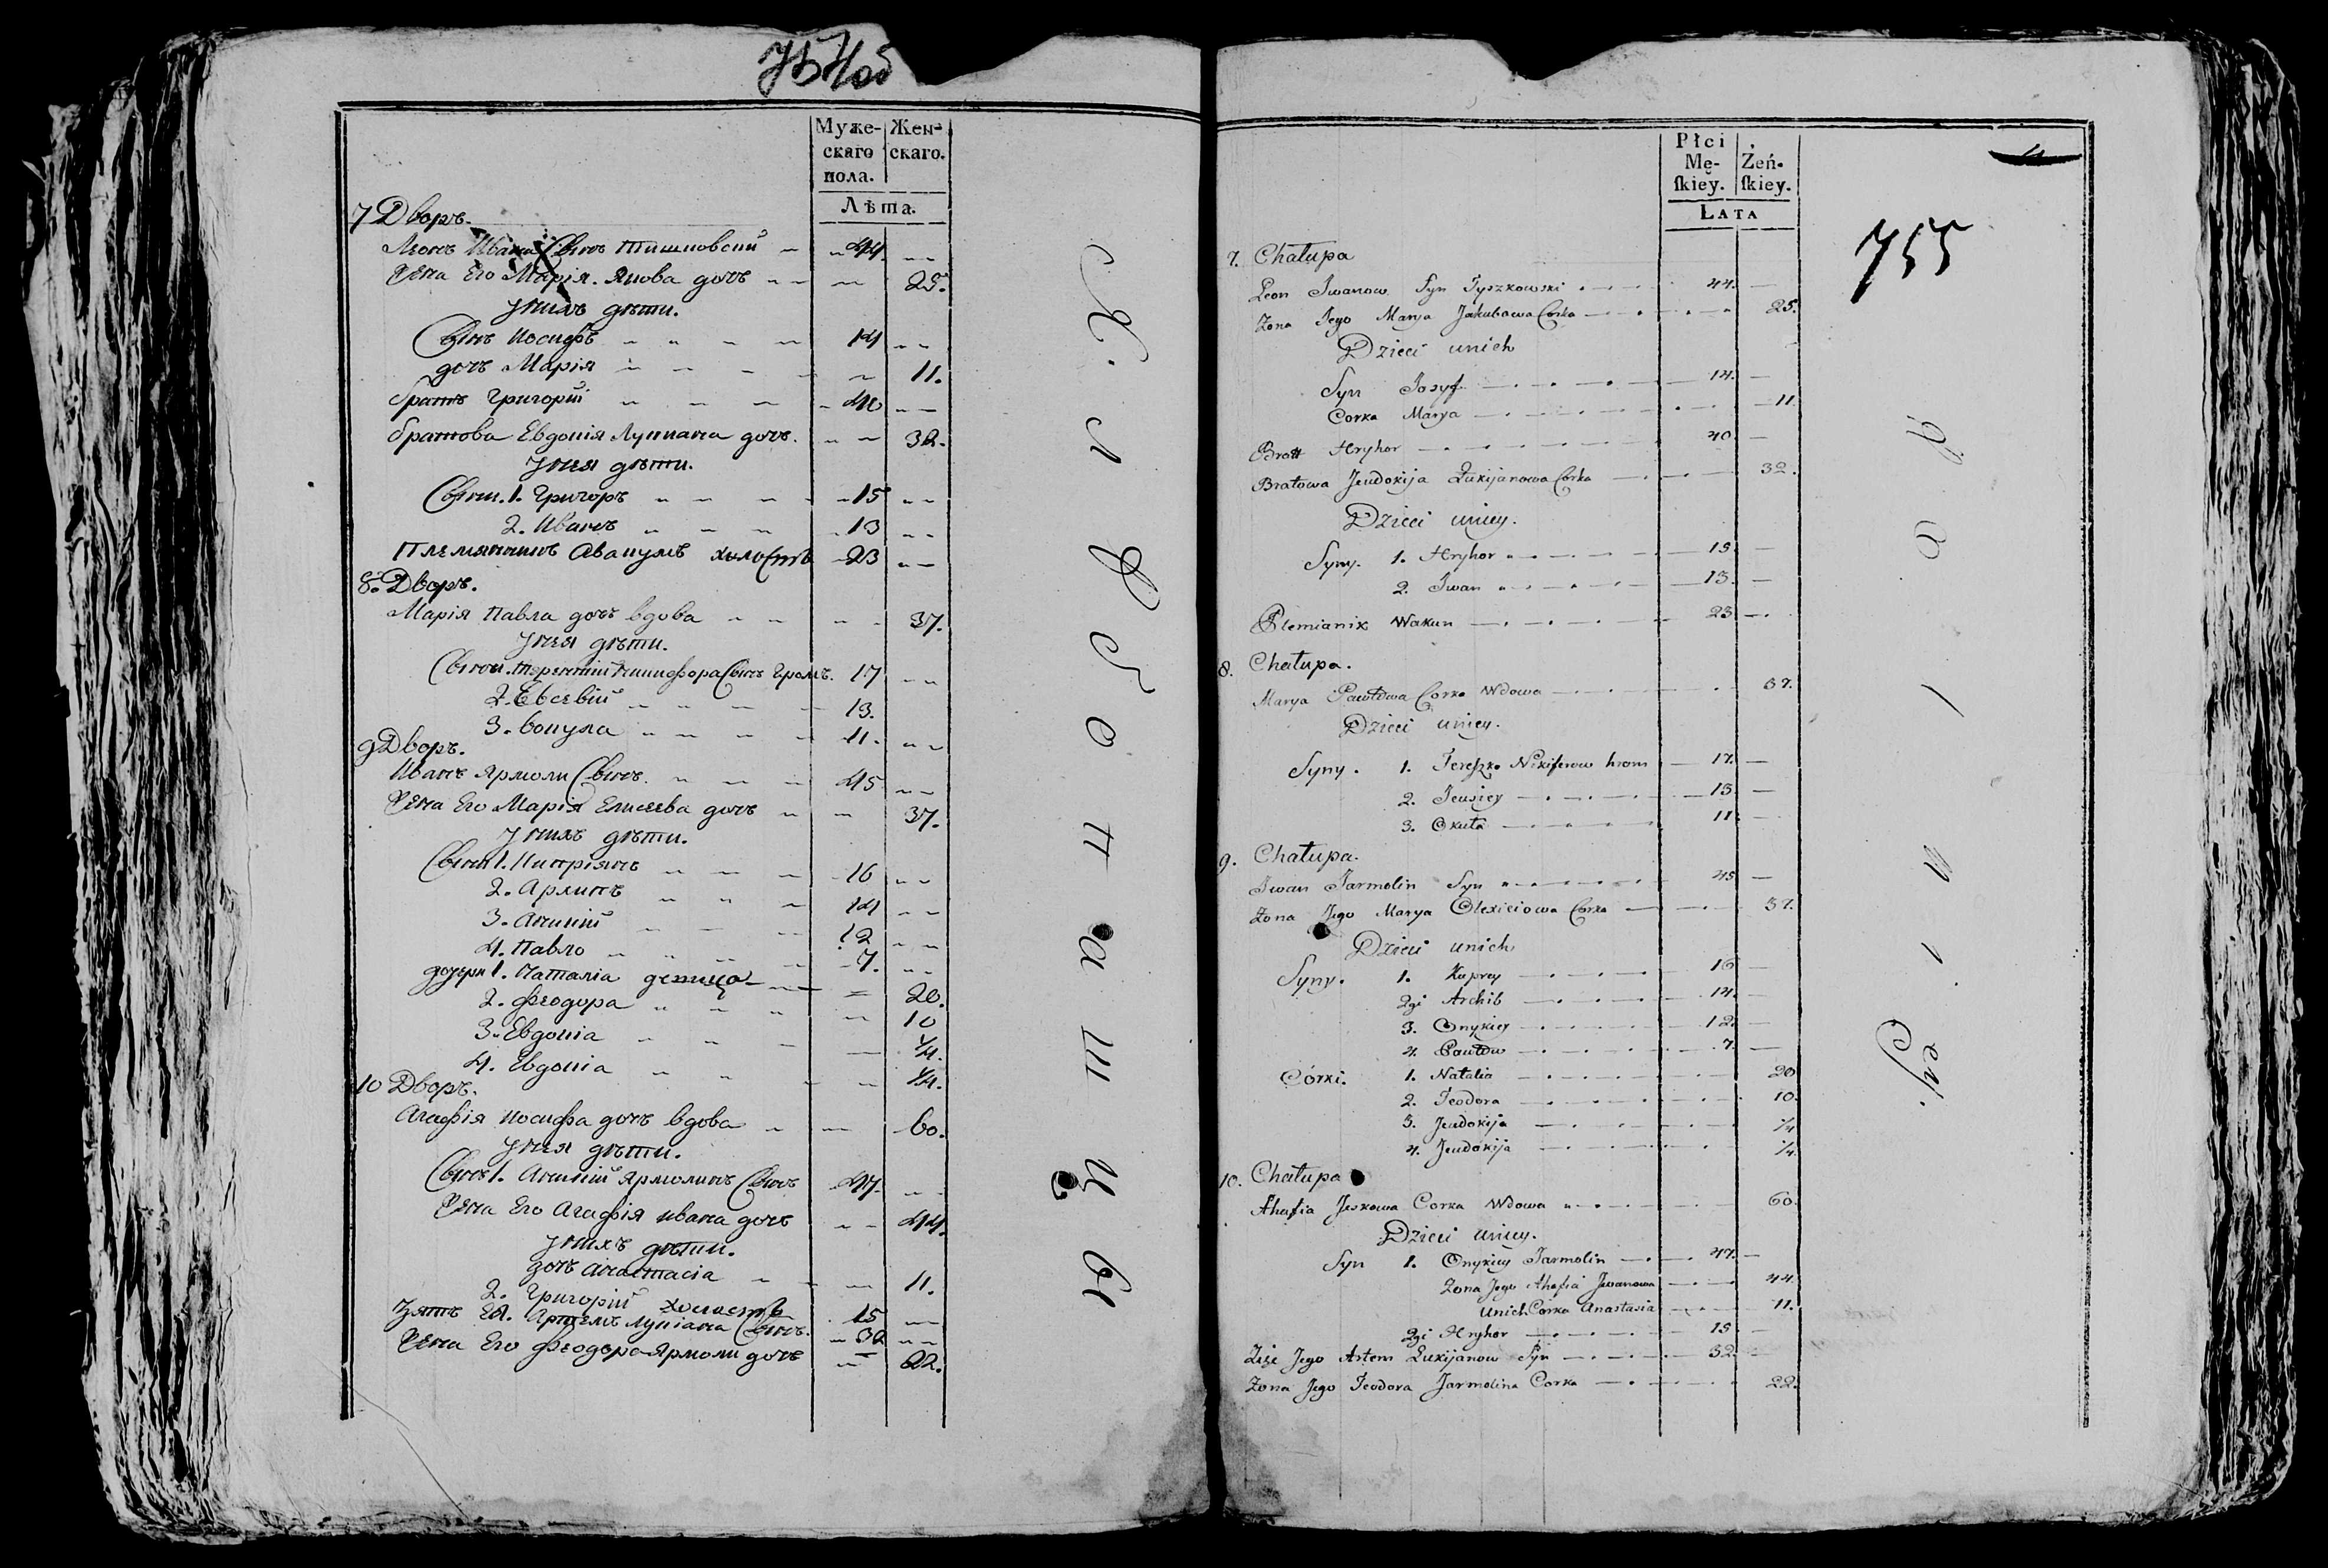 754об
Муже-
скаго
пола.
Жен-
скаго.
Лѣта.
7 Дворъ.
Леонъ Ивана Сынъ Тишковский 44
Жена Его Марія. Якова дочь 25.
У нихъ дѣти.
Сынъ Иосифъ 14
дочь Марія 11.
братъ Григорий 40
братова Евдокія Лукиана дочь. 32.
У нея дѣти.
Сыни. 1. Григоръ 15
2. Иванъ 13
Племянникъ Авакумъ холостъ 23
8. Дворъ.
Марія Павла дочь вдова 37.
У нея дѣти.
Сыни. Терентий Никифора Сынъ Громъ. 17
2. Евсевий 13.
3. Вокула 11.
9 Дворъ.
Иванъ Ярмоли Сынъ. 45
Жена Его Марія Елисеева дочь 37.
У нихъ дѣти.
Сыни 1. Киприянъ 16
2. Архипъ 14
3. Аникий 12
4. Павло 7.
дочери 1. Наталіа девица 20.
2. Феодора 10
3. Евдокіа 1/4.
4. Евдокіа 1/4.
10 Дворъ.
Агафія Иосифа дочь вдова 60.
У нея дѣти.
Сынъ 1. Аникий Ярмолинъ Сынъ 47.
Жена Его Агафія Ивана дочь 44.
У нихъ дѣти.
дочь Анастасіа 11.
2. Григорий холостъ 15
Зять Ея. Артемъ Лукіана Сынъ. 32
Жена Его Феодора Ярмоли дочь 22.
Х. л Ѣ б о п а ш ц ы
Płci
Mę-
ſkiey.
Żeń-
ſkiey.
Lata
4
755
7. Chałupa
Leon Iwanow Syn Tyszkowski 44.
Zona Jego Marya Jakubowa Corka 25.
Dzieci unich
Syn Iosyf 14.
Corka Marya 11.
Bratt Hryhor 40.
Bratowa Jeudokija Łukijanowa Corka 32.
Dzieci uniey.
Syny. 1. Hryhor 15.
2. Iwan 13.
Plemianik Wakun 23
8. Chałupa.
Marya Pawłowa Corka Wdowa 37.
Dzieci uniey.
Syny. 1. Tereszko Nikiferow hrom 17.
2. Jeusiey 13.
3. Okuła 11.
9. Chałupa.
Iwan Jarmolin Syn 45
Zona Jego Marya Olexieiowa Corka 37.
Dzieci unich
Syny. 1. Kuprey 16
2gi Archib 14.
3. Onykiey 12.
4. Pawłow 7.
Córki. 1. Natalia 20
2. Teodora 10.
3. Jeudokija 1/4
4. Jeudokija 1/4.
10. Chałupa
Ahafia Jeskowa Corka Wdowa 60.
Dzieci uniey.
Syn 1. Onykiey Jarmolin 47.
Zona Jego Ahafia Iwanowa 44.
Unich Corka Anastasia 11.
2gi Hryhor 15
Zięć Jego Artem Łukijanow Syn 32.
Zona Jego Teodora Jarmolina Corka 22.